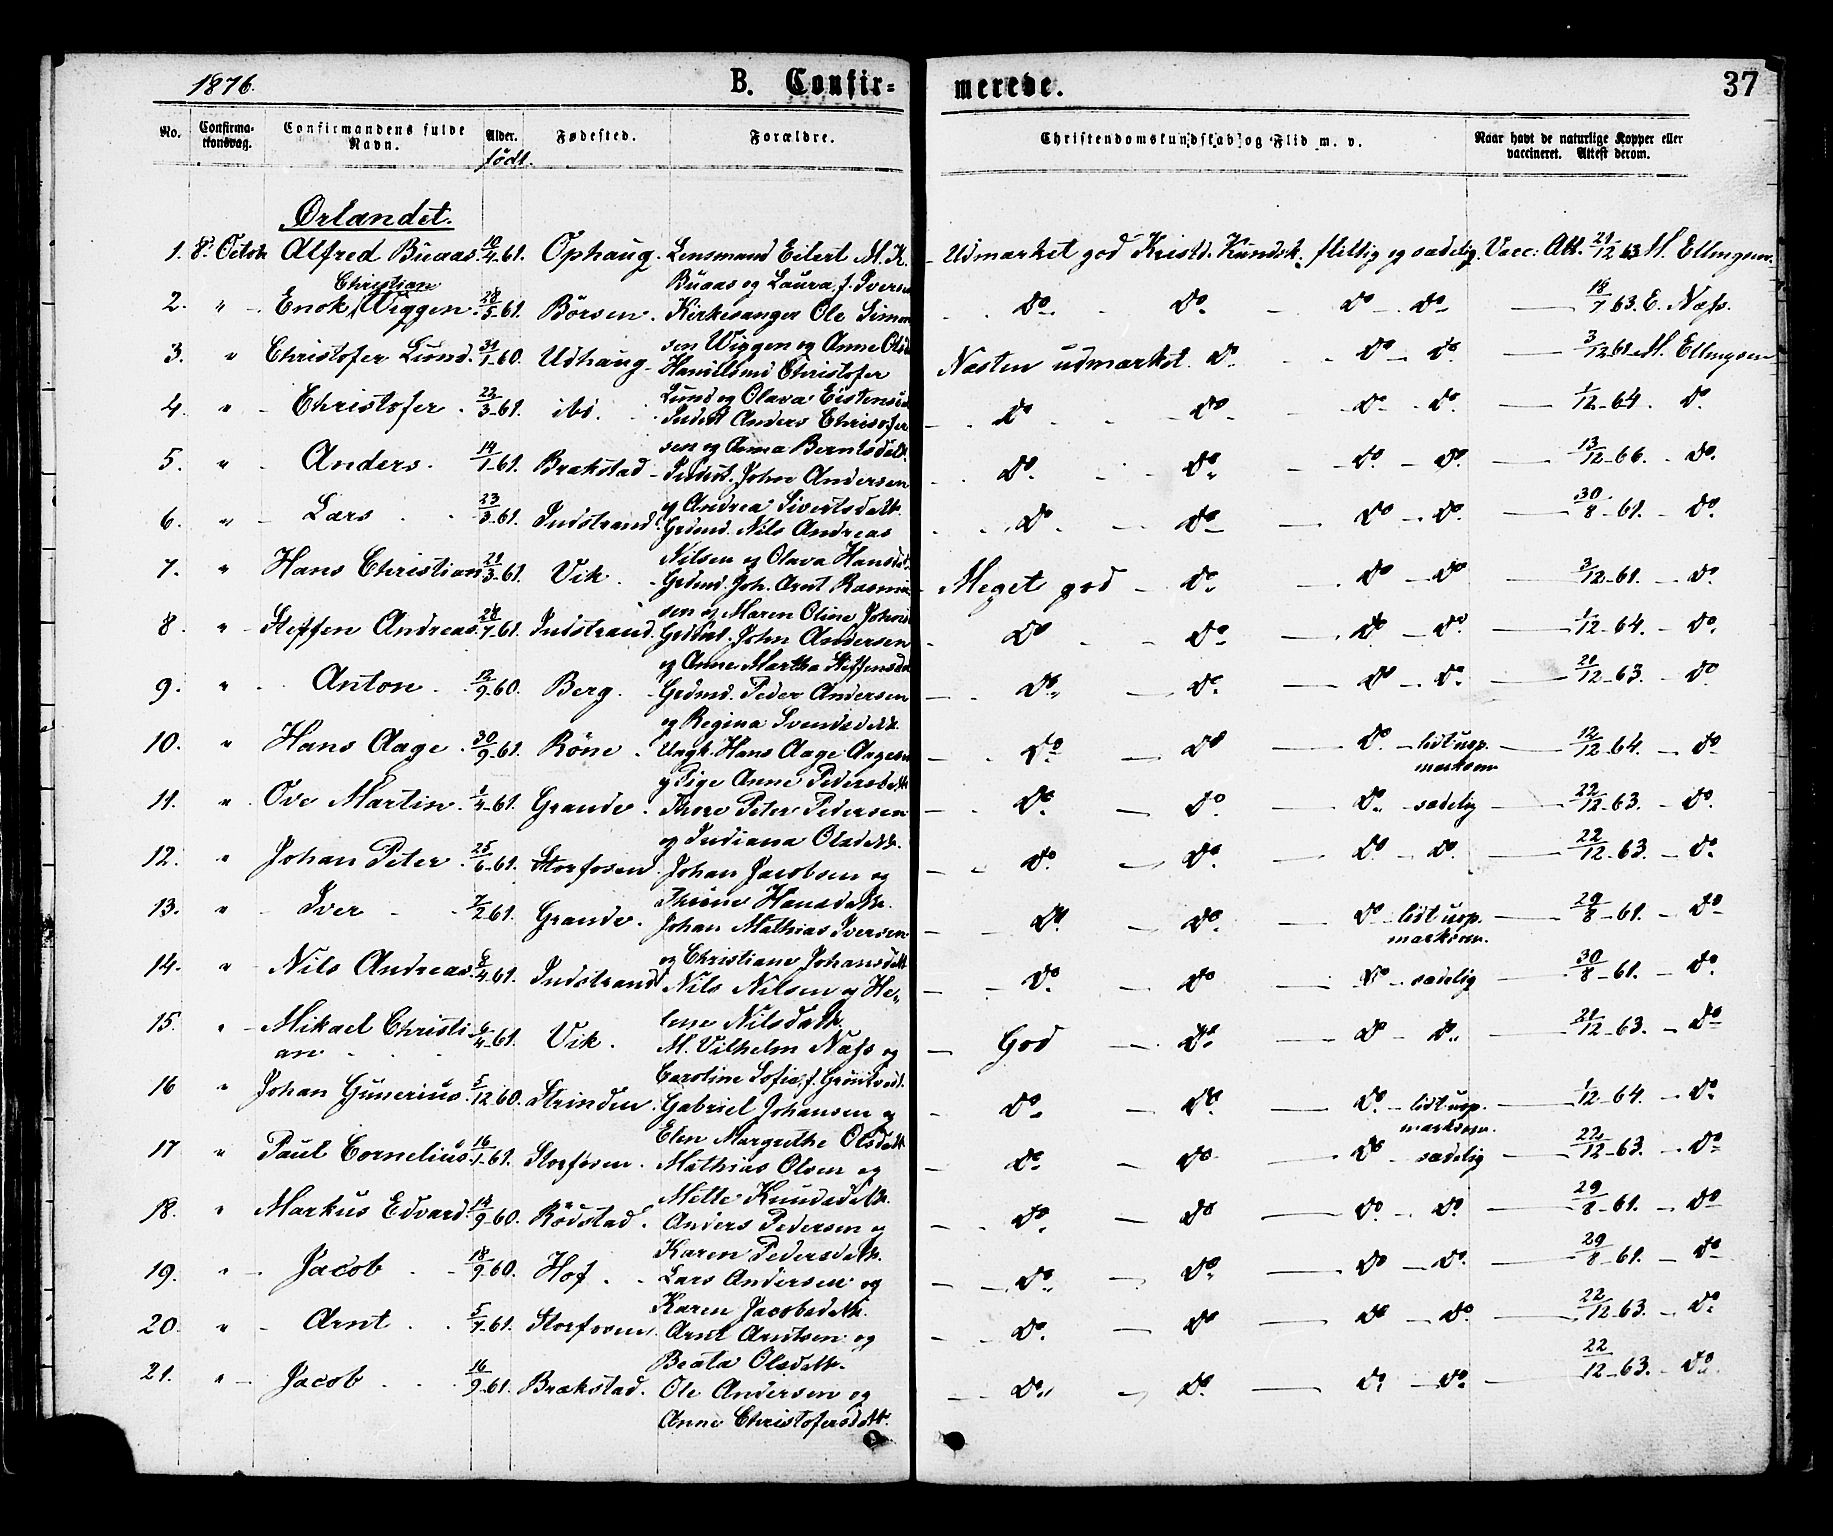 1876. B. Confir- merede. 37
No. Confirma-tionsdag. Confirmandens fulde Navn. Alder. født. Fødested. Forældre. Christendomskundskab og Flid m. v. Naar havt de naturlige Kopper eller vaccineret. Attest derom.
Ørlandet.
1. 8de Octob Alfred Buaas 10/4 61. Ophaug. Lensmand Eilert M. K. Udmærket god Kristd. Kundsk. flittig og sædelig. Vacc: Att. 21/12 63 M. Ellingsen.
Christian Buaas og Laura f. Iversen
2. " Enok Wiggen 28/5 61. Børsen. Kirkesanger Ole Simon do do do do 18/7 63. E. Næss.
sen Wiggen og Anne Olsd
3. " Christofer Lund. 31/1 60. Udhaug Handelsmd Christofer Næsten udmærket do do do 3/12 61. M. Ellingsen
Lund og Olava Eistensd
4. " Christofer. 22/3 61. ibi. Inderst Anders Christofer do do do do 1/12 64. do
sen og Anna Berntsdatt.
5. " Anders. 14/1 61. Brækstad Inderst. John Andersen do do do do 13/12 66. do.
og Andrea Sivertsdatt.
6. " Lars 23/3 61. Indstrand. Grdmd. Nils Andreas do do do do 30/8 61. do.
Nilsen og Olava Hansd.
7. " Hans Christian 21/3 61. Vik. Grdmd. Joh. Arnt Rasmu Meget god do do do 3/12 61. do.
sen og Maren Oline Johns
8. " Steffen Andreas. 28/7 61. Indstrand. John Andersen do do do do 1/12 64. do.
og Anne Martha Steffensd
9. " Anton. 12/9 60. Berg. Grdmd. Peder Andersen do do do do 21/12 63. do
og Regina Svendsdatt.
10. " Hans Aage. 30/9 61. Røne. Ungk. Hans Aage Aagesen do do do lidt op. mærksom 12/12 64. do
og Pige Anne Pedersdatt
11. " Ove Martin. 1/4 61. Grande. Thore Peter Pedersen do do do sædelig 22/12 63. do.
og Indiana Olsdatt.
12. " Johan Peter 25/6 61. Storfosen. Johan Jacobsen og do do do do 22/12 63. do.
Hansdatt.
13. " Iver 7/2 61. Grande. Johan Mathias Iversen do do do lidt op. mærksom. 29/8 61. do
og Christiane Johansdatt
14. " Nils Andreas. 6/4 61. Indstrand Nils Nilsen og He- do do do sædelig 30/8 61. do.
lene Nilsdatt.
15. " Mikael Christi- an 6/4 61. Vik. M. Vilhelm Næss og God do do do 21/12 63. do
Caroline Sofia, f.
16 " Johan Gunerius. 5/12 60. Strinden. Gabriel Johansen og do do do lidt op. mærksom. 1/12 64. do
Elen Margrethe Olsdatt
17 " Paul Cornelius. 16/1 61. Storfosen. Mathias Olsen og do do do sædelig 22/12 63. do
Mette Knudsdatt.
18. " Markus Edvard. 14/9 60. Rødstad. Anders Pedersen og do do do do 29/8 61. do
Karen Pedersdatt.
19. " Jacob 18/9 60. Hof. Lars Andersen og do do do do. 29/8 61. do
Karen Jacobsdatt.
20. " Arnt 5/7 61. Storfosen. Arnt Arntsen og do do do do. 22/12 63. do
Beata Olsdatt.
21. " Jacob 16/9 61. Brækstad. Ole Andersen og do do do do 22/12 63. do.
Anne Christofersdatt.